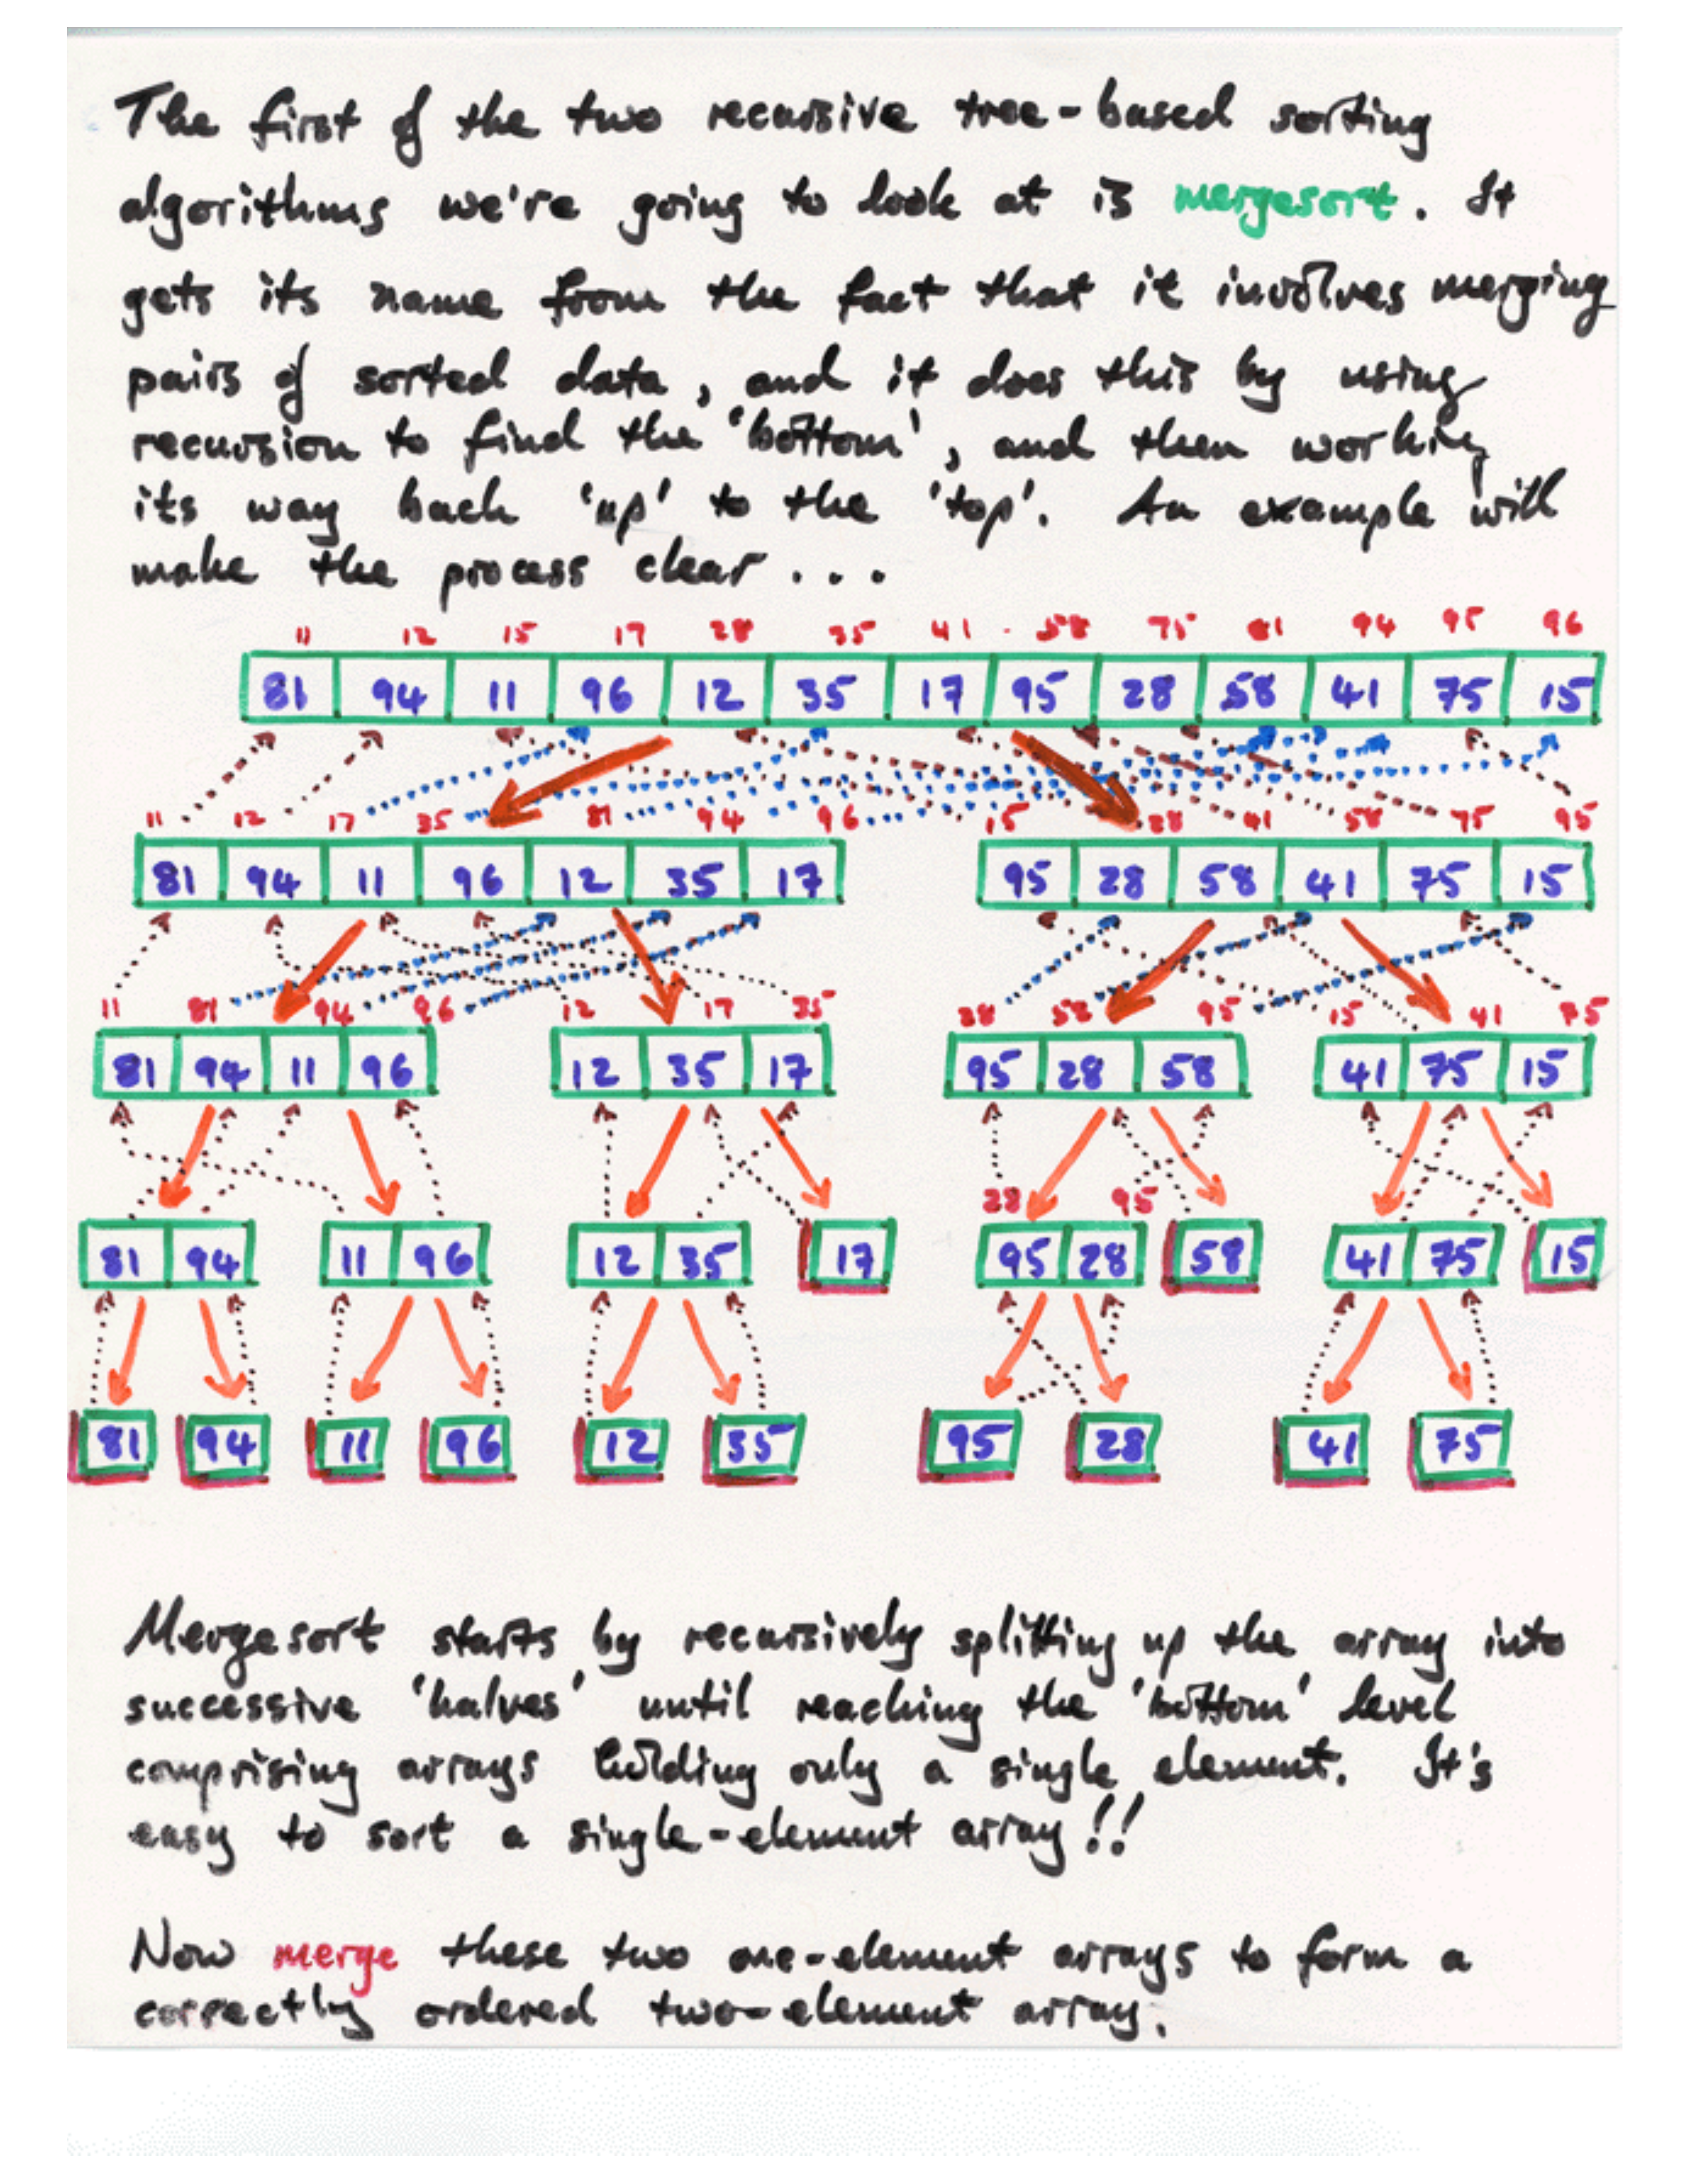 The first of the two recursive tree-based sorting
algorithms we're going to look at is mergesort. It
gets its name from the fact that it involves merging
pairs of sorted data, and it does this by using
recursion to find the 'bottom', and then working
its way back 'up' to the 'top'. An example will
make the process clear...
11 12 15 17 28 35 41 58 75 81 94 95 96
81 94 11 96 12 35 17 95 28 58 41 75 15
11 12 17 35 81 94 96 15 28 41 58 75 95
81 94 11 96 12 35 17 95 28 58 41 75 15
11 81 94 96 12 17 35 28 58 95 15 41 75
81 94 11 96 12 35 17 95 28 58 41 75 15
28 95
81 94 11 96 12 35 17 95 28 58 41 75 15
81 94 11 96 12 35 95 28 41 75
Mergesort starts by recursively splitting up the array into
successive 'halves' until reaching the 'bottom' level
comprising arrays holding only a single element. It's
easy to sort a single-element array!!
Now merge these two one-element arrays to form a
correctly ordered two-element array.